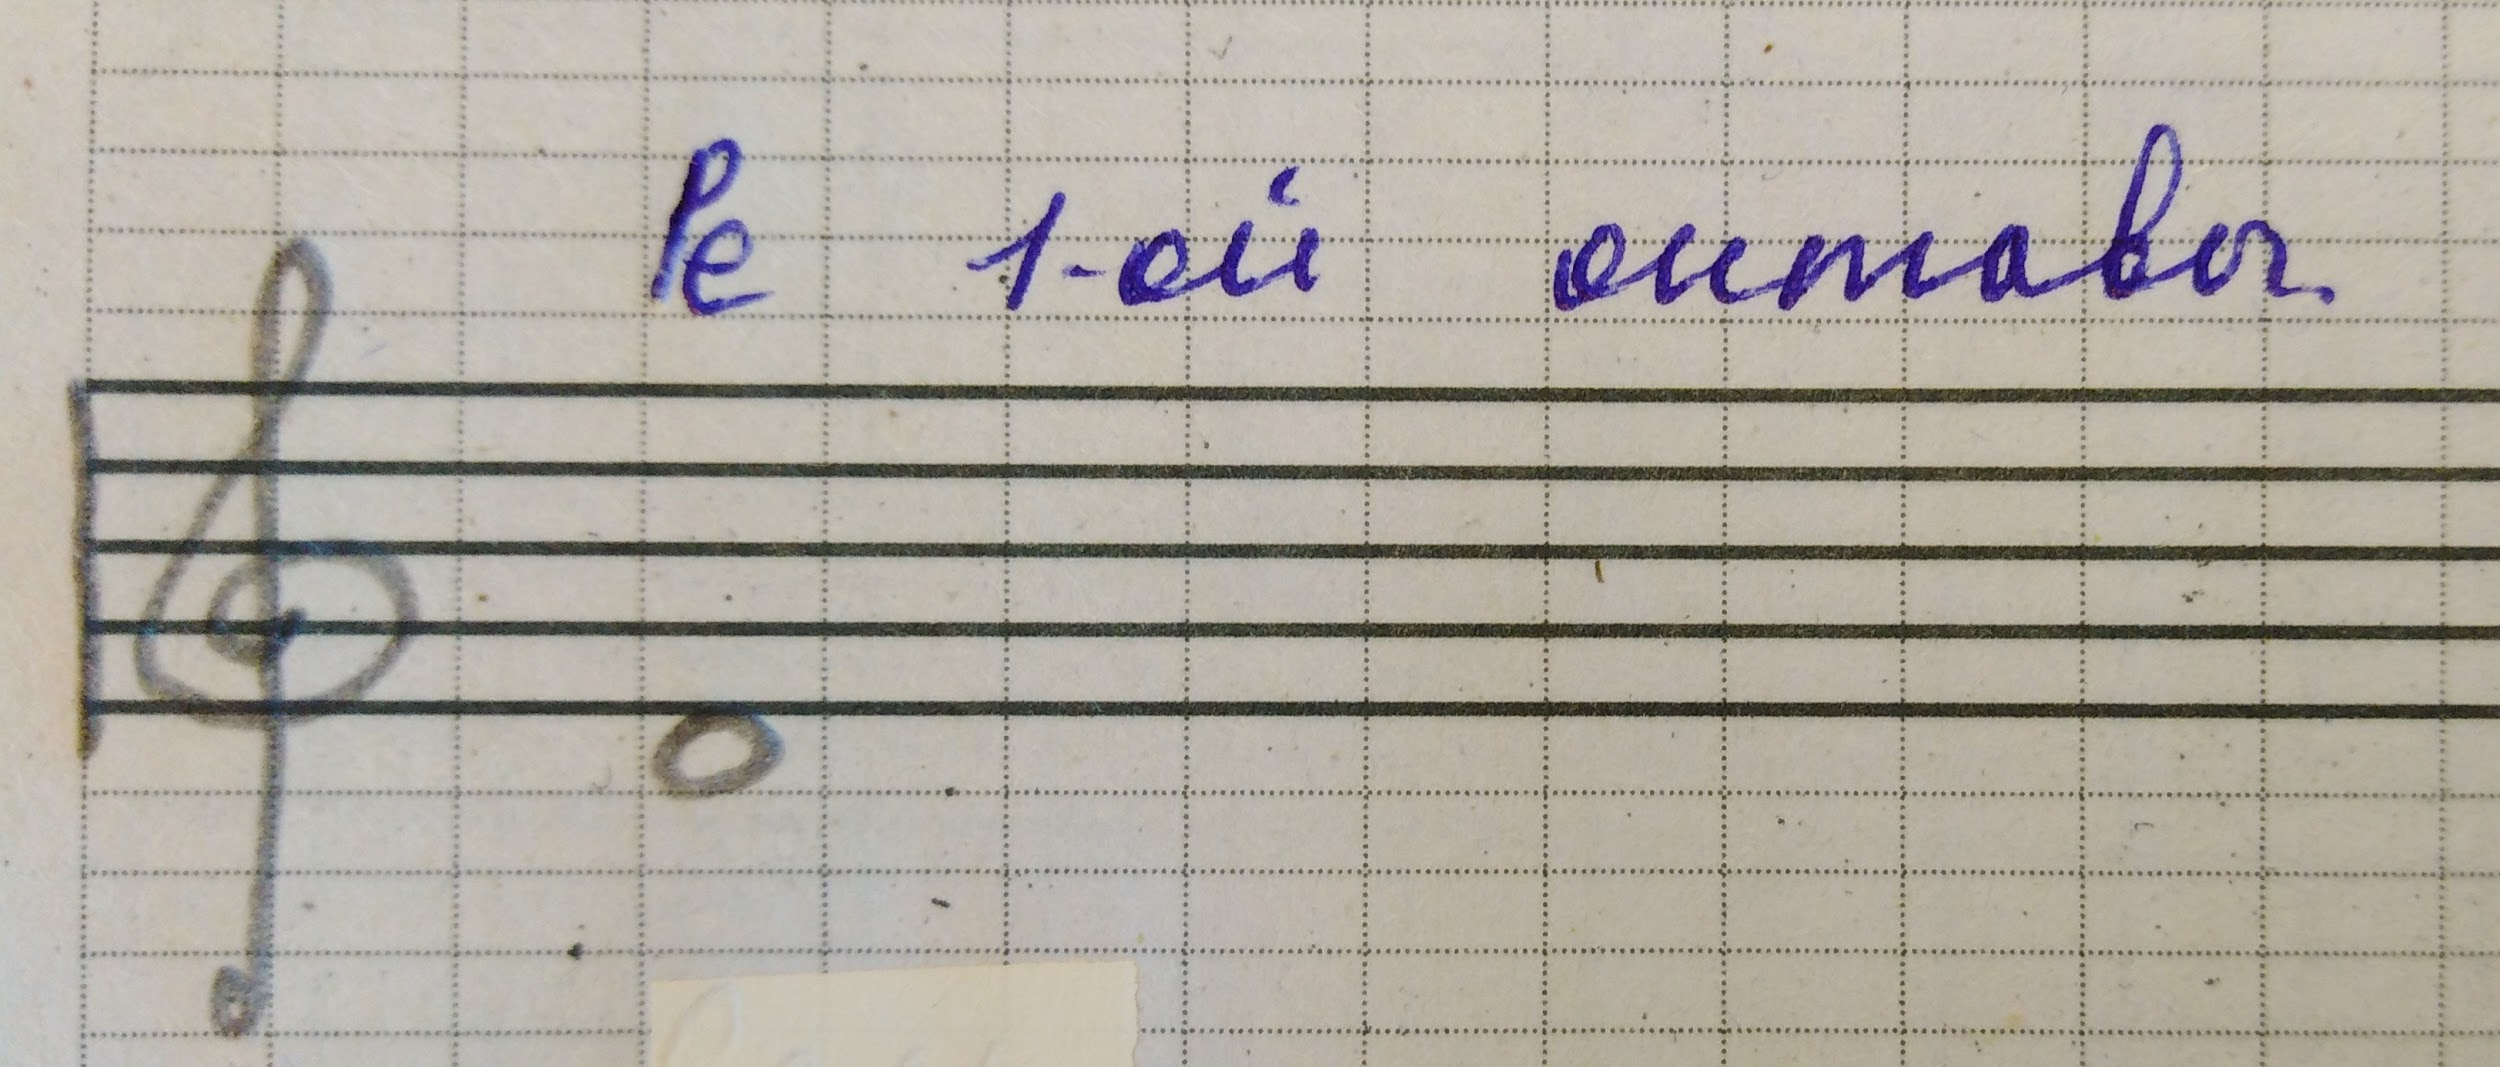 Ре 1-ой октавы